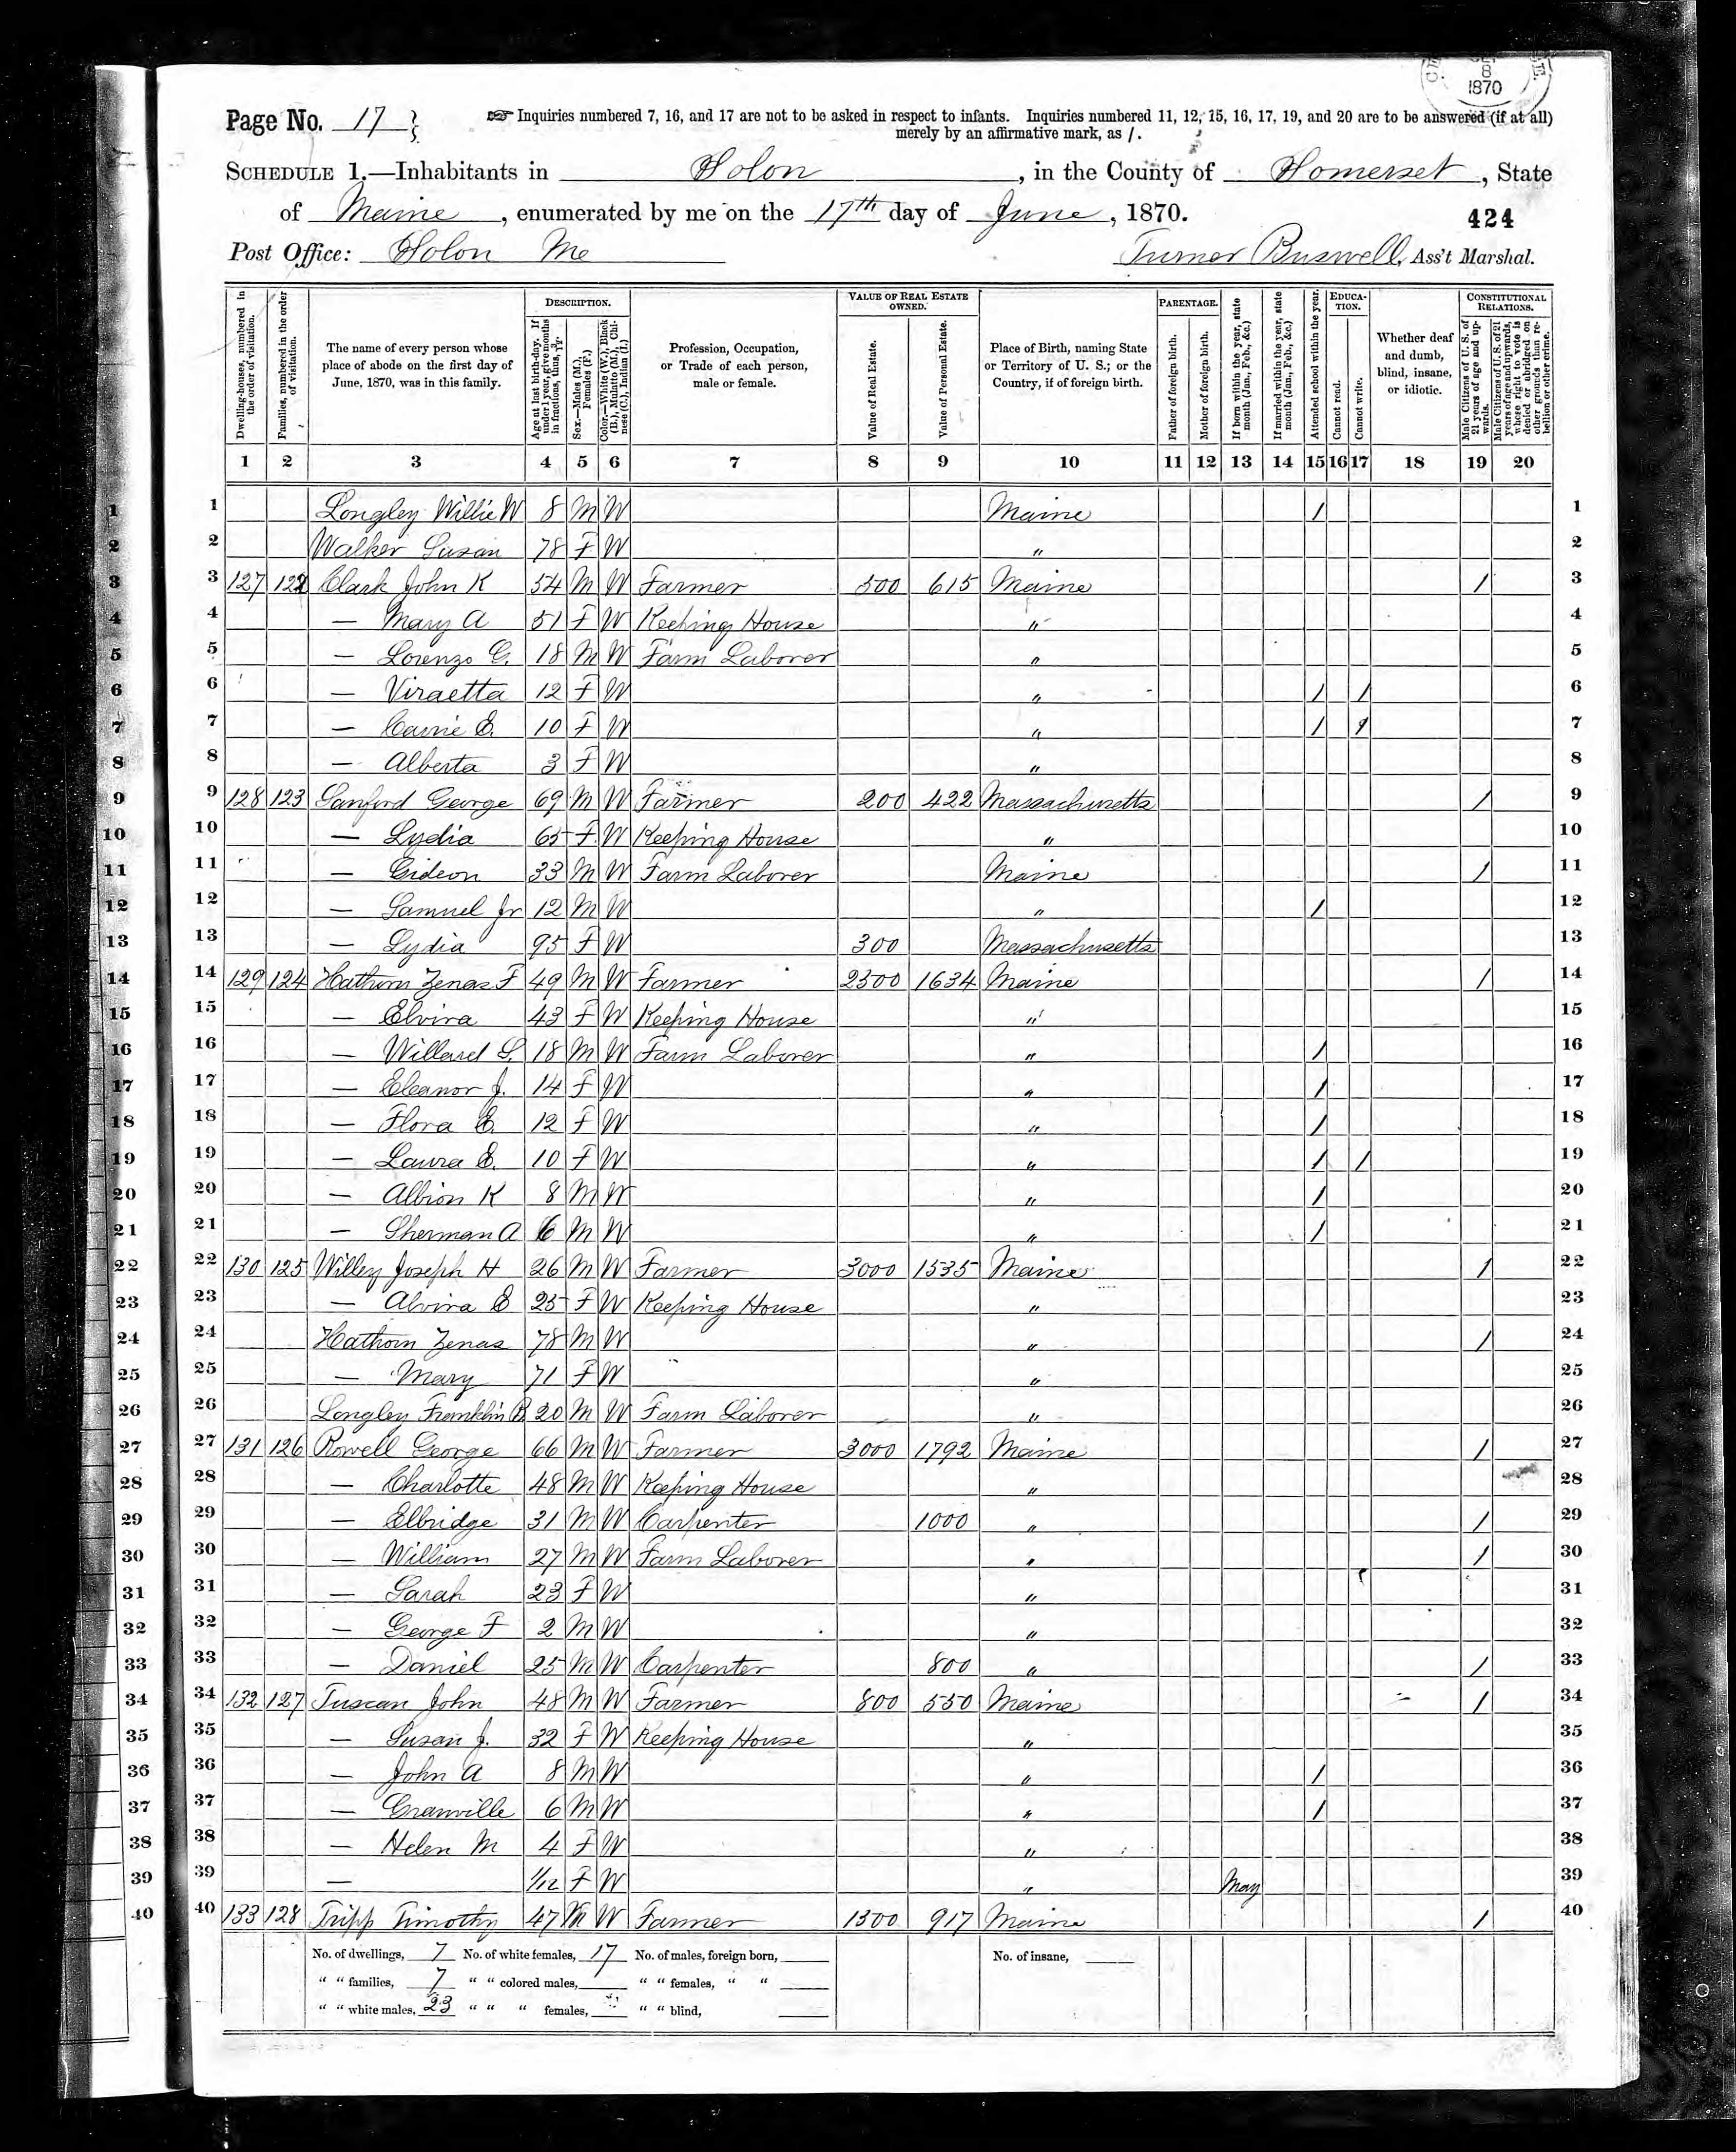 1870
Page No. 17
Inquiries numbered 7, 16, and 17 are not to be asked in respect to infants. Inquiries numbered 11, 12, 15, 16, 17, 19, and 20 are to be answered (if at all)
merely by an affirmative mark, as /.
SCHEDULE 1.—Inhabitants in Solon, in the County of Somerset, State
of Maine, enumerated by me on the 17th day of June, 1870.
424
Post Office: Solon Me
Turner Buswell, Ass't Marshal.
Dwelling-houses, numbered in the order of visitation.
Families, numbered in the order of visitation.
The name of every person whose place of abode on the first day of June, 1870, was in this family.
DESCRIPTION.
Age at last birth-day. If under 1 year, give months in fractions, thus, 3/12
Sex.—Males (M.), Females (F.)
Color.—White (W.), Black (B.), Mulatto (M.), Chinese (C.), Indian (I.)
Profession, Occupation, or Trade of each person, male or female.
VALUE OF REAL ESTATE OWNED.
Value of Real Estate.
Value of Personal Estate.
Place of Birth, naming State or Territory of U. S.; or the Country, if of foreign birth.
PARENTAGE.
Father of foreign birth.
Mother of foreign birth.
If born within the year, state month (Jan., Feb., &c.)
If married within the year, state month (Jan., Feb., &c.)
Attended school within the year.
EDUCATION.
Cannot read.
Cannot write.
Whether deaf and dumb, blind, insane, or idiotic.
CONSTITUTIONAL RELATIONS.
Male Citizens of U. S. of 21 years of age and upwards.
Male Citizens of U. S. of 21 years of age and upwards, whose right to vote is denied or abridged on other grounds than rebellion or other crime.
1 2 3 4 5 6 7 8 9 10 11 12 13 14 15 16 17 18 19 20
1 Longley Willie W 8 M W Maine / 1
2 Walker Susan 78 F W " 2
3 127 122 Clark John K 54 M W Farmer 500 615 Maine / 3
4 — Mary A 51 F W Keeping House " 4
5 — Lorenzo G. 18 M W Farm Laborer " 5
6 — Viraetta 12 F W " / / 6
7 — Carrie E. 10 F W " / / 7
8 — Alberta 3 F W " 8
9 128 123 Sanford George 69 M W Farmer 200 422 Massachusetts / 9
10 — Lydia 65 F W Keeping House " 10
11 — Gideon 33 M W Farm Laborer Maine / 11
12 — Samuel Jr 12 M W " / 12
13 — Lydia 95 F W 300 Massachusetts 13
14 129 124 Hathorn Zenas F 49 M W Farmer 2300 1634 Maine / 14
15 — Elvira 43 F W Keeping House " 15
16 — Willard S. 18 M W Farm Laborer " / 16
17 — Eleanor J. 14 F W " / 17
18 — Flora E. 12 F W " / 18
19 — Laura E. 10 F W " / / 19
20 — Albion K 8 M W " / 20
21 — Sherman A 6 M W " / 21
22 130 125 Willey Joseph H 26 M W Farmer 3000 1535 Maine / 22
23 — Alvira E 25 F W Keeping House " 23
24 Hathorn Zenas 78 M W " / 24
25 — Mary 71 F W " 25
26 Longley Franklin B. 20 M W Farm Laborer " 26
27 131 126 Rowell George 66 M W Farmer 3000 1792 Maine / 27
28 — Charlotte 48 M W Keeping House " 28
29 — Elbridge 31 M W Carpenter 1000 " / 29
30 — William 27 M W Farm Laborer " / 30
31 — Sarah 23 F W " 31
32 — George F 2 M W " 32
33 — Daniel 25 M W Carpenter 800 " / 33
34 132 127 Tuscan John 48 M W Farmer 800 550 Maine / 34
35 — Susan J. 32 F W Keeping House " 35
36 — John A 8 M W " / 36
37 — Granville 6 M W " / 37
38 — Helen M 4 F W " 38
39 — 1/12 F W " May 39
40 133 128 Tripp Timothy 47 M W Farmer 1300 917 Maine / 40
No. of dwellings, 7 No. of white females, 17 No. of males, foreign born, No. of insane,
" " families, 7 " " colored males, " " females, " "
" " white males, 23 " " " females, " " blind,